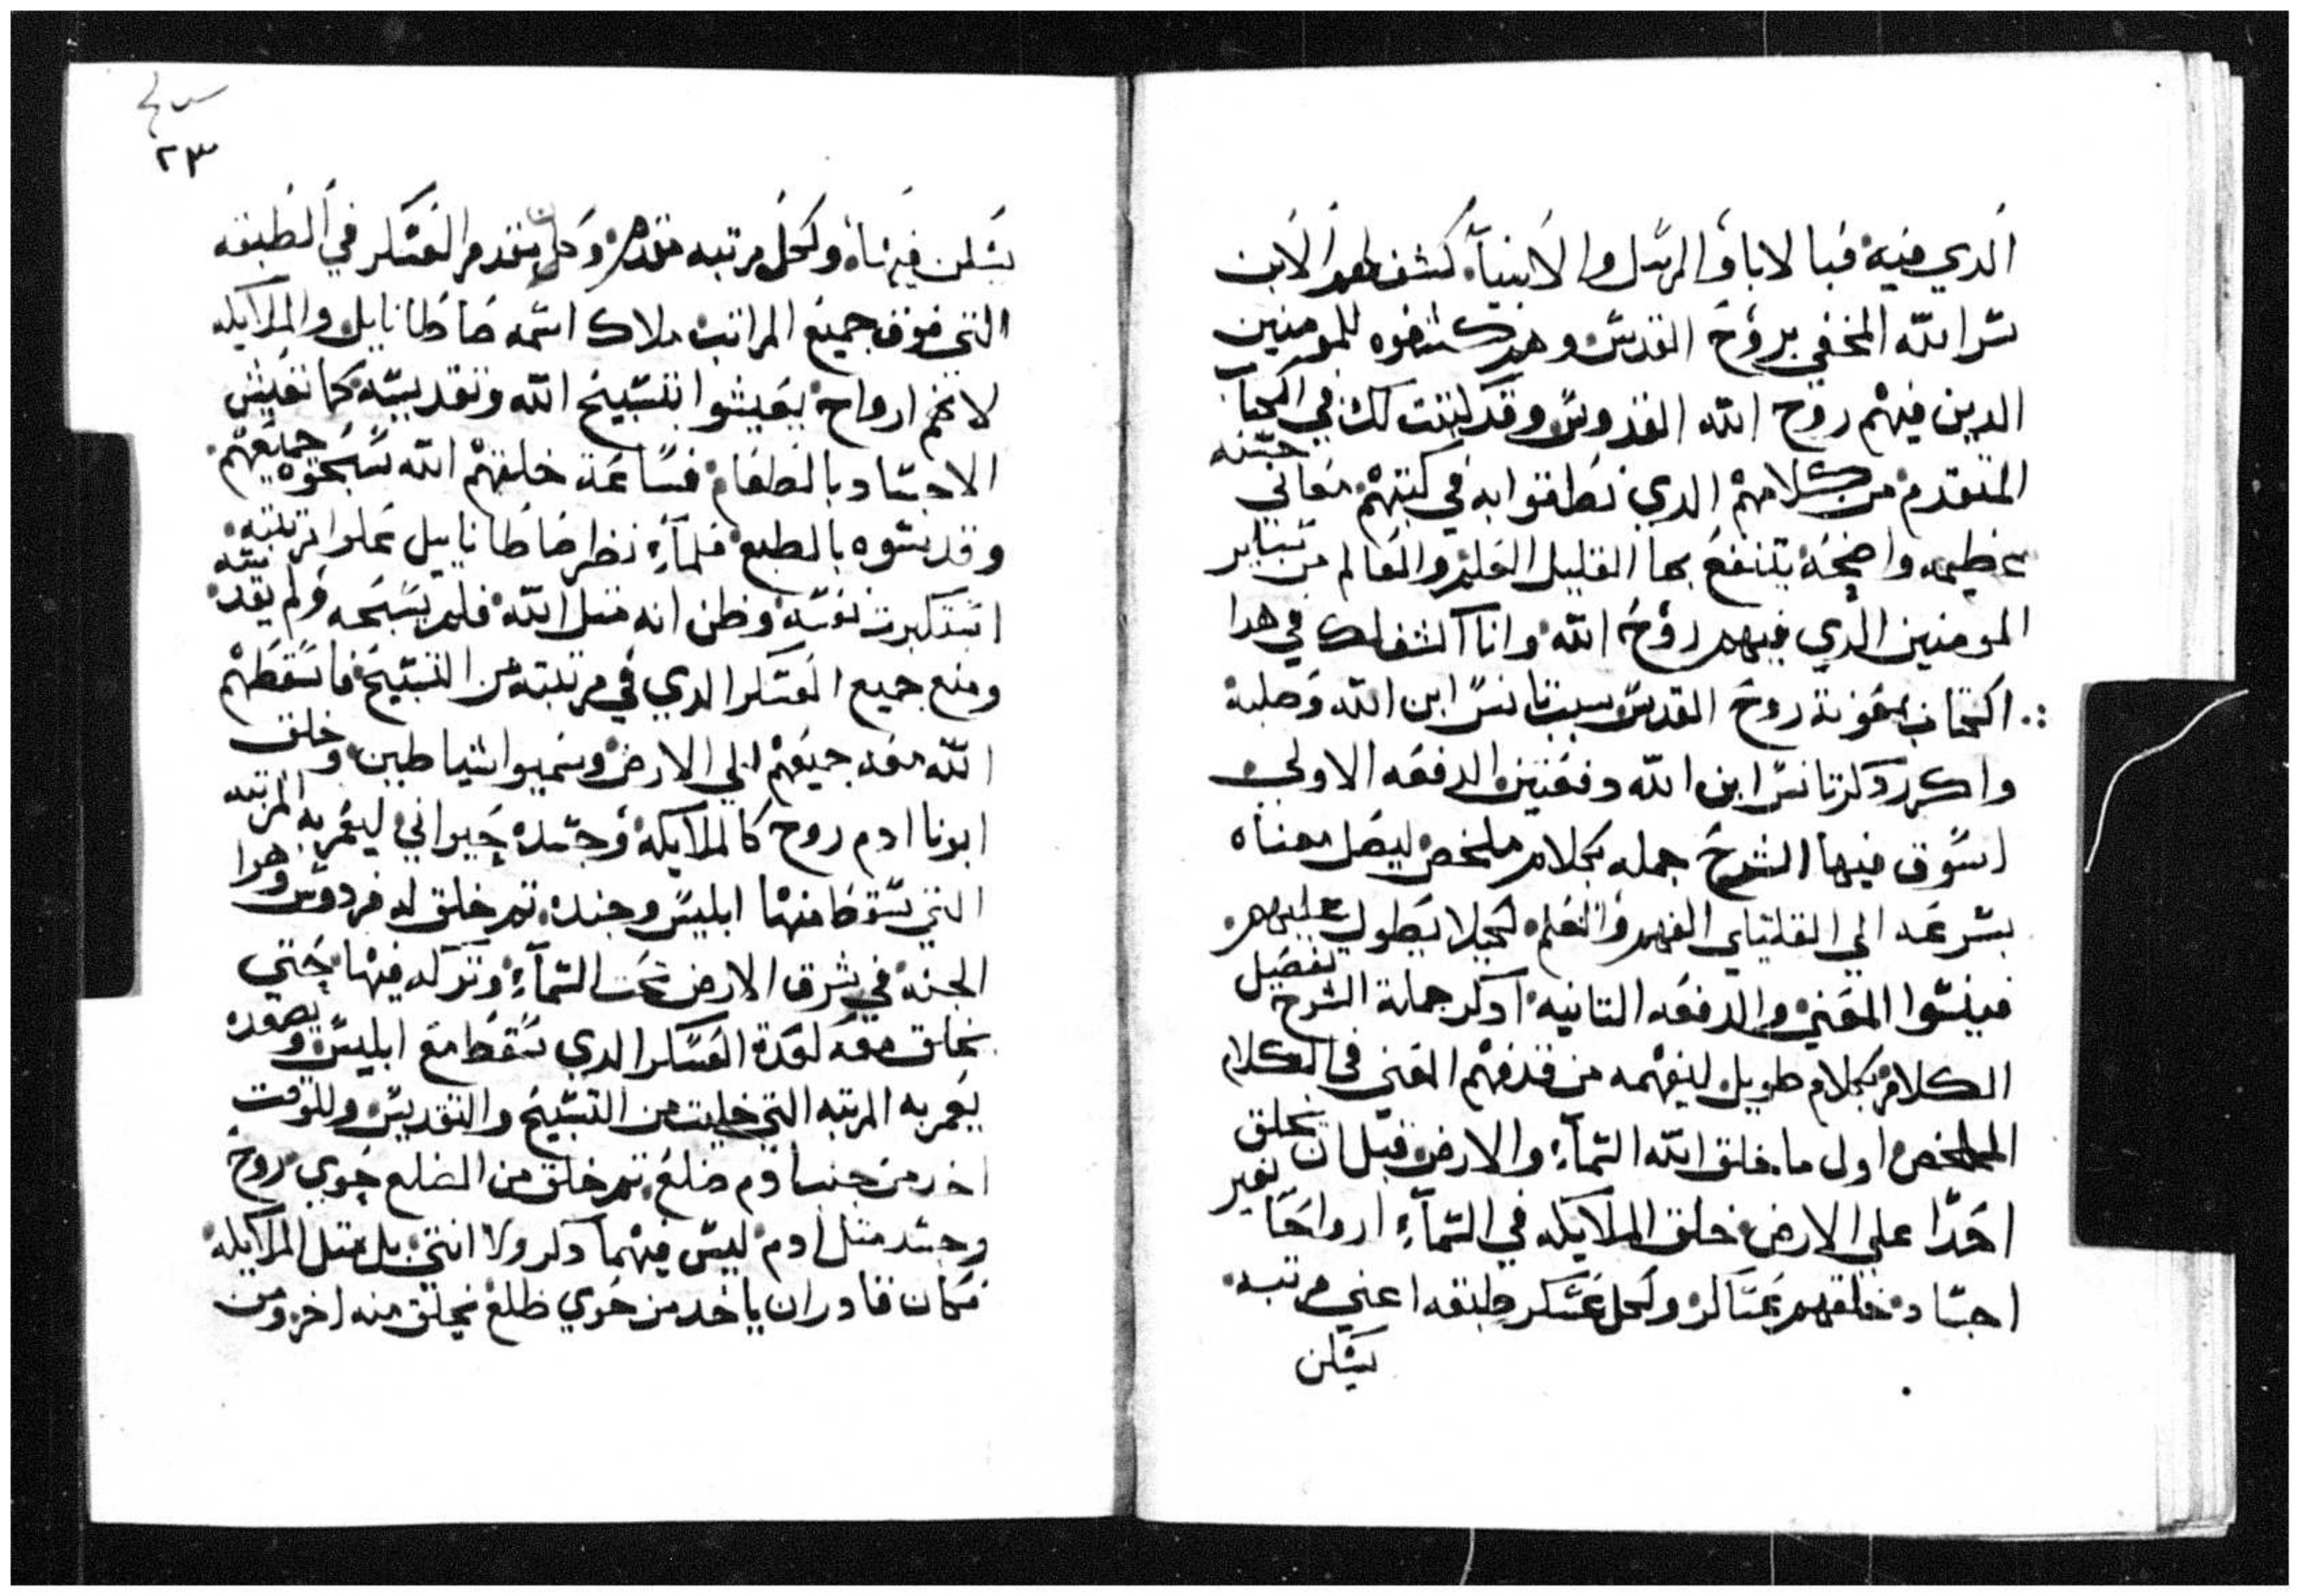 الدي فيه فبا لابا والرسل والانبيآ كشف لهم الابن
سر الله المخفي بروح القدس وهم كشفوه للمومنين
الدين فيهم روح الله القدوس وقد بينت لك في الكتاب
المتقدم من كلامهم الدي نطقوا به في كتبهم معاني حسنه
عظيمه واضحه ينتفع بها القليل العلم والعالم من ساير
المومنين الدي فيهم روح الله وانا اكشف لك في هدا
الكتاب بمعونة روح القدس سبب تانس ابن الله وصلبه
واكرر دكر تانس ابن الله دفعتين الدفعه الاولى
اسوق فيها الشرح جمله بكلام ملخص ليصل معناه
بسرعه الي القليلي الفهم والعلم لكيلا يطول عليهم
فينسوا المعني والدفعه التانيه ادكر جملة الشرح تفصيل
الكلام بكلام طويل ليفهمه من قد فهم المعني في الكلام
الملخص اول ما خلق الله السمآء والارض قبل ان يخلق
احدًا علي الارض خلق الملايكه في السمآء ارواحًا بغير
اجساد خلقهم عساكر ولكل عسكر طبقه اعني مرتبه
يسكن
٢٣
يسكن فيها ولكل مرتبه مقدم وكان مقدم العسكر في الطبقه
التي فوق جميع المراتب ملاك اسمه صاطانايل والملايكه
لانهم ارواح يعيشوا بتسبيح الله وتقديسه كما تعيش
الاجساد بالطعام فساعة خلقهم الله سبحوه جميعهم
وقدسوه بالطبع فلمآء نظر صاطانايل علوا مرتبته
استكبرت نفسه وظن انه متل الله فلم يسبحه ولم يقدسه
ومنع جميع العسكر الدي في مرتبته من التسبيح فاسقطهم
الله معه جميعهم الي الارض وسميوا شياطين وخلق
ابونا ادم روح كالملايكه وجسده حيواني ليعمر به المرتبه
التي سقط منها ابليس وجنده تم خلق له فردوس وهوا
الجنه في شرق الارض تحت السمآء وتركه فيها حتي
يخلق معه لعدة العسكر الدي سقط مع ابليس ويصعده
يعمر به المرتبه التي خليت من التسبيح والتقديس وللوقت
اخد من جنب ادم ضلع تم خلق من الضلع حوي روح
وجسد متل ادم ليس فيهما دكر ولا انتي بل متل الملايكه
فكان قادر ان ياخد من حوي ظلع يخلق منه اخر ومن